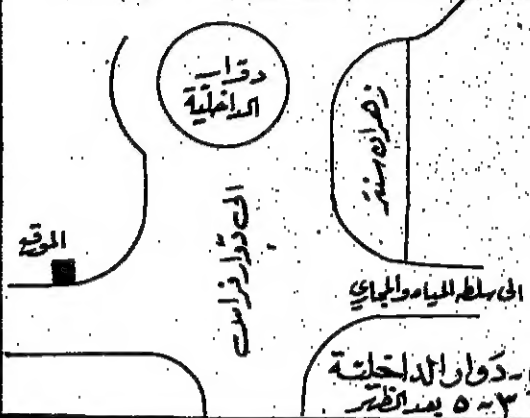 دوار
الداخلية
زهران سنتر
الى دوار فراس
الموقع
الى سلطة المياه والمجاري
دوار الداخلية
٣-٥ بعد الظهر